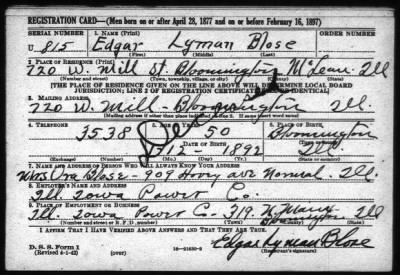 REGISTRATION CARD—(Men born on or after April 28, 1877 and on or before February 16, 1897)
SERIAL NUMBER 1. NAME (Print) ORDER NUMBER
U 815 Edgar Lyman Blose
(First) (Middle) (Last)
2. PLACE OF RESIDENCE (Print)
720 W. Mill St. Bloomington McLean Ill
(Number and street) (Town, township, village, or city) (County) (State)
[THE PLACE OF RESIDENCE GIVEN ON THE LINE ABOVE WILL DETERMINE LOCAL BOARD
JURISDICTION; LINE 2 OF REGISTRATION CERTIFICATE WILL BE IDENTICAL]
3. MAILING ADDRESS
720 W. Mill - Bloomington Ill.
[Mailing address if other than place indicated on line 2. If same insert word same]
4. TELEPHONE 5. AGE IN YEARS 6. PLACE OF BIRTH
3538 50 Bloomington
DATE OF BIRTH (Town or county)
12 1892 Ill.
(Exchange) (Number) (Mo.) (Day) (Yr.) (State or country)
7. NAME AND ADDRESS OF PERSON WHO WILL ALWAYS KNOW YOUR ADDRESS
Mrs Ora Blose - 909 Hovey ave Normal. Ill.
8. EMPLOYER'S NAME AND ADDRESS
Ill. Iowa Power Co.
9. PLACE OF EMPLOYMENT OR BUSINESS
Ill. Iowa Power Co - 319 Ill
(Number and street or R. F. D. number) (Town) (County) (State)
I AFFIRM THAT I HAVE VERIFIED ABOVE ANSWERS AND THAT THEY ARE TRUE.
D. S. S. Form 1
(Revised 4-1-42) (over) 16—21630-2
Edgar Lyman Blose
(Registrant's signature)